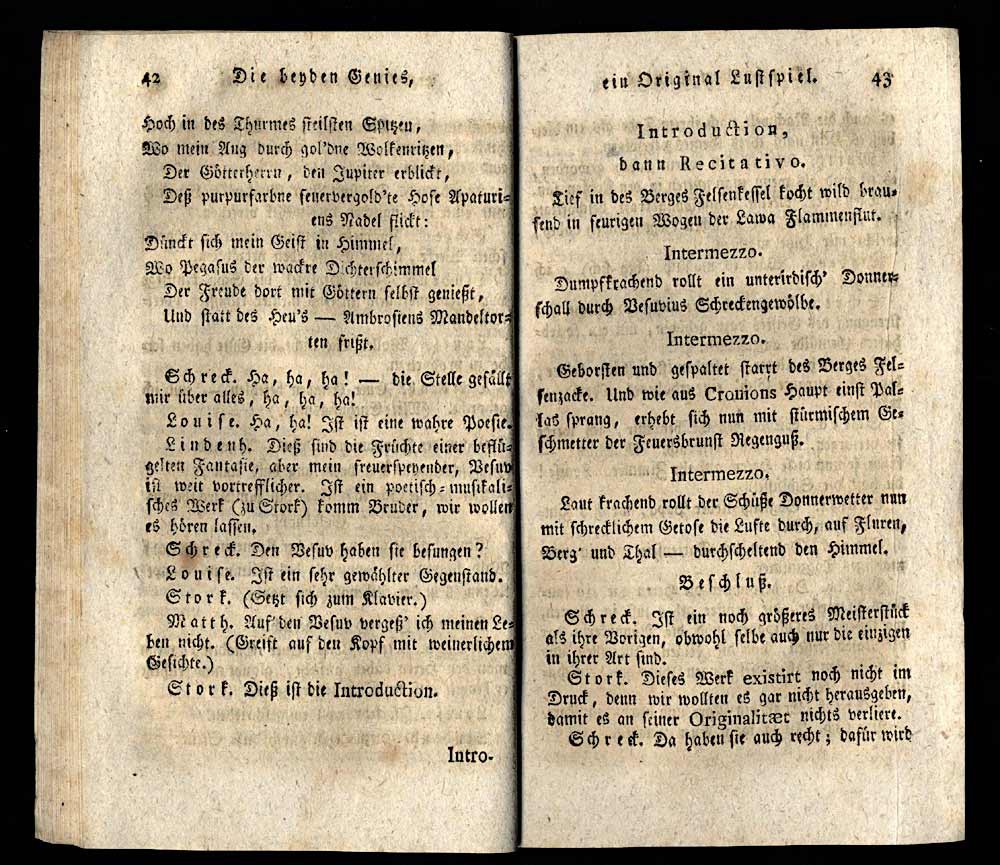 42 Die beyden Genies,
Hoch in des Thurmes steilsten Spitzen,
Wo mein Aug durch gol'dne Wolkenritzen,
Der Götterherrn, den Jupiter erblickt,
Deß purpurfarbne feuervergold'te Hose Apaturi=
ens Nadel flickt:
Dünckt sich mein Geist in Himmel,
Wo Pegasus der wackre Dichterschimmel
Der Freude dort mit Göttern selbst genießt,
Und statt des Heu's — Ambrosiens Mandeltor=
ten frißt.
Schreck. Ha, ha, ha! — die Stelle gefällt
mir über alles, ha, ha, ha!
Louise. Ha, ha! Ist ist eine wahre Poesie.
Lindenh. Dieß sind die Früchte einer beflü=
gelten Fantasie, aber mein freuerspeyender, Vesuv
ist weit vortrefflicher. Ist ein poetisch=musikali=
sches Werk (zu Stork) komm Bruder, wir wollen
es hören lassen.
Schreck. Den Vesuv haben sie besungen?
Louise. Ist ein sehr gewählter Gegenstand.
Stork. (Setzt sich zum Klavier.)
Matth. Auf den Vesuv vergeß' ich meinen Le=
ben nicht. (Greift auf den Kopf mit weinerlichem
Gesichte.)
Stork. Dieß ist die Introduction.
Intro-
ein Original Lustspiel. 43
Introduction,
dann Recitativo.
Tief in des Berges Felsenkessel kocht wild brau=
send in feurigen Wogen der Lawa Flammenflut.
Intermezzo.
Dumpfkrachend rollt ein unterirdisch' Donner=
schall durch Vesuvius Schreckengewölbe.
Intermezzo.
Geborsten und gespaltet starrt des Berges Fel=
senzacke. Und wie aus Cronions Haupt einst Pal=
las sprang, erhebt sich nun mit stürmischem Ge=
schmetter der Feuersbrunst Regenguß.
Intermezzo.
Laut krachend rollt der Schüße Donnerwetter nun
mit schrecklichem Getose die Lufte durch, auf Fluren,
Berg' und Thal — durchscheltend den Himmel.
Beschluß.
Schreck. Ist ein noch größeres Meisterstück
als ihre Vorigen, obwohl selbe auch nur die einzigen
in ihrer Art sind.
Stork. Dieses Werk existirt noch nicht im
Druck, denn wir wollten es gar nicht herausgeben,
damit es an seiner Originalitæt nichts verliere.
Schreck. Da haben sie auch recht; dafür wird